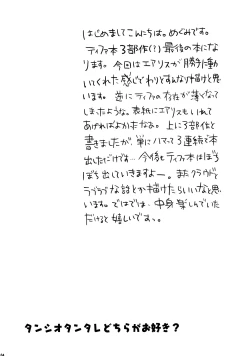 はじめましてこんにちは。めぐみです。
ティファ本3部作(?)最後の本にな
ります。今回はエアリスが勝手に動
いてくれた感じでわりとすんなり描けと思
います。逆にティファの存在が薄くなって
しまったような。表紙にエアリスもいれて
あげればよかったなぁ。上に3部作と
書きましたが、単にハマって3連続で本
出しただけです…今後もティファ本はぼち
ぼち出していきますよー。またクラウドと
ラブラブな話とか描けたらいいなと思
います。ではでは、中身楽しんでいた
だけると嬉しいですっ。
タンシオタンタレどちらがお好き?